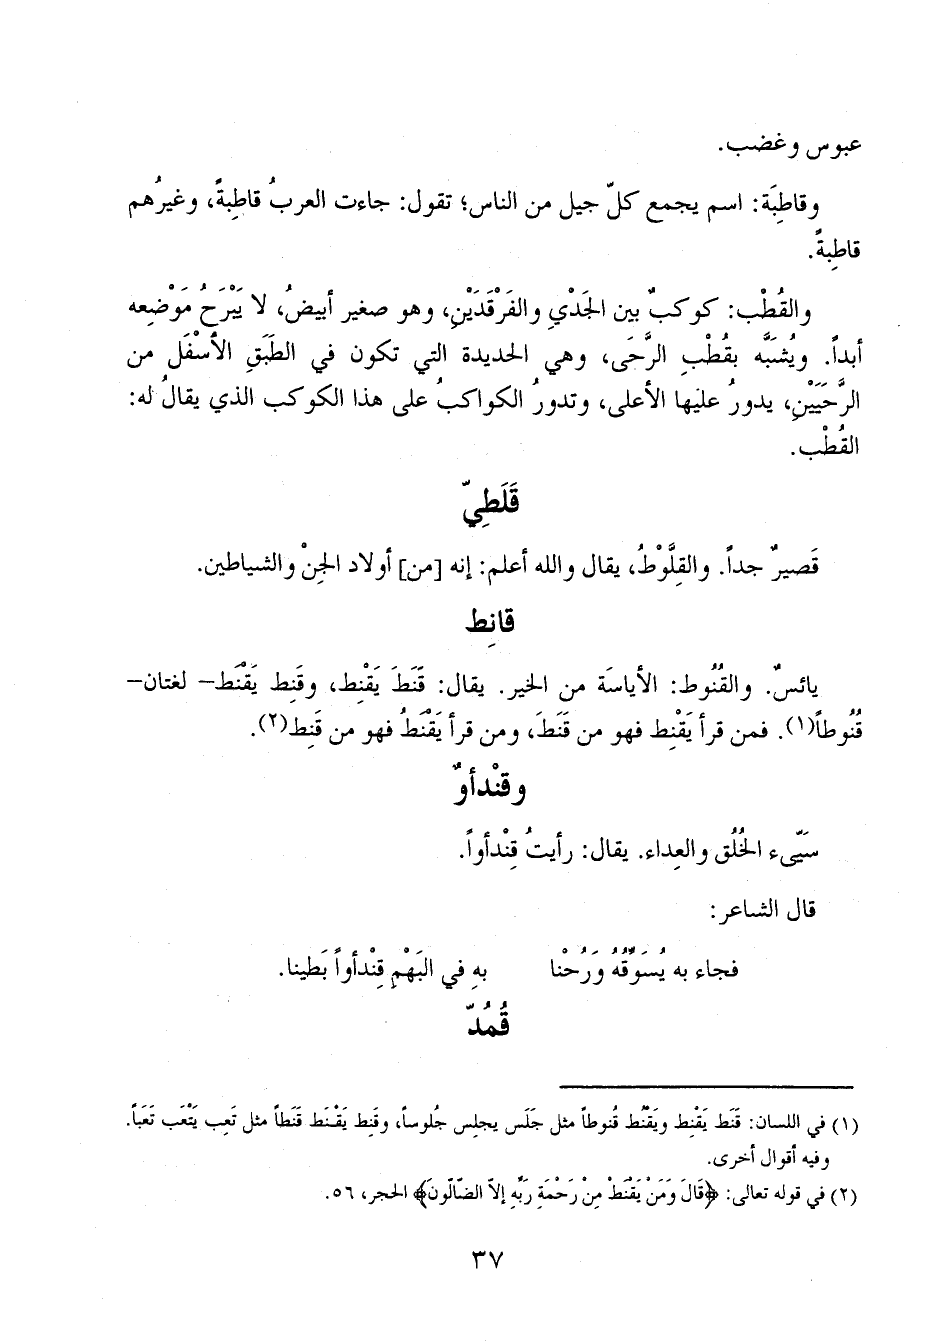 عبوس وغضب.
وقاطِبَة: اسم يجمع كلّ جيل من الناس؛ تقول: جاءت العربُ قاطِبةً، وغيرُهم
قاطِبةً.
والقُطْب: كوكبٌ بين الجَدْيِ والفَرْقَدَيْنِ، وهو صغير أبيضُ، لا يَبْرَحُ مَوْضِعه
أبداً. ويُشَبَّه بقُطْبِ الرَّحَى، وهي الحديدة التي تكون في الطَبَقِ الأسْفَل من
الرَّحَيَيْنِ، يدورُ عليها الأعلى، وتدورُ الكواكبُ على هذا الكوكب الذي يقالُ له:
القُطْب.
قَلَطِيّ
قَصيرٌ جداً. والقِلَّوْطُ، يقال والله أعلم: إنه [من] أولاد الجنْ والشياطين.
قانِط
يائسٌ. والقُنُوط: الأياسَة من الخير. يقال: قَنَطَ يَقْنِط، وقَنِط يَقْنَط– لغتان–
قُنُوطاً(١). فمن قرأ يَقْنِط فهو من قَنَطَ، ومن قرأ يَقْنَطُ فهو من قَنِط(٢).
وقنْدأوٌ
سَيّىء الخُلُق والعِداء. يقال: رأيتُ قِنْدأواً.
قال الشاعر:
فجاء به يُسَوِّقُهُ وَرُحْنا     بهِ في البَهْمِ قِنْدأواً بَطينا.
قُمُدّ
(١) في اللسان: قَنَط يَقْنِط ويَقْنُط قُنوطاً مثل جَلَس يجلِس جُلوساً، وقَنِط يَقْنَط قَنَطاً مثل تَعِب يَتْعَب تَعَباً.
وفيه أقوال أخرى.
(٢) في قوله تعالى: ﴿قَالَ وَمَنْ يَقْنَطُ مِنْ رَحْمَةِ رَبِّهِ إلاّ الضّالّونَ﴾ الحجر، ٥٦.
٣٧